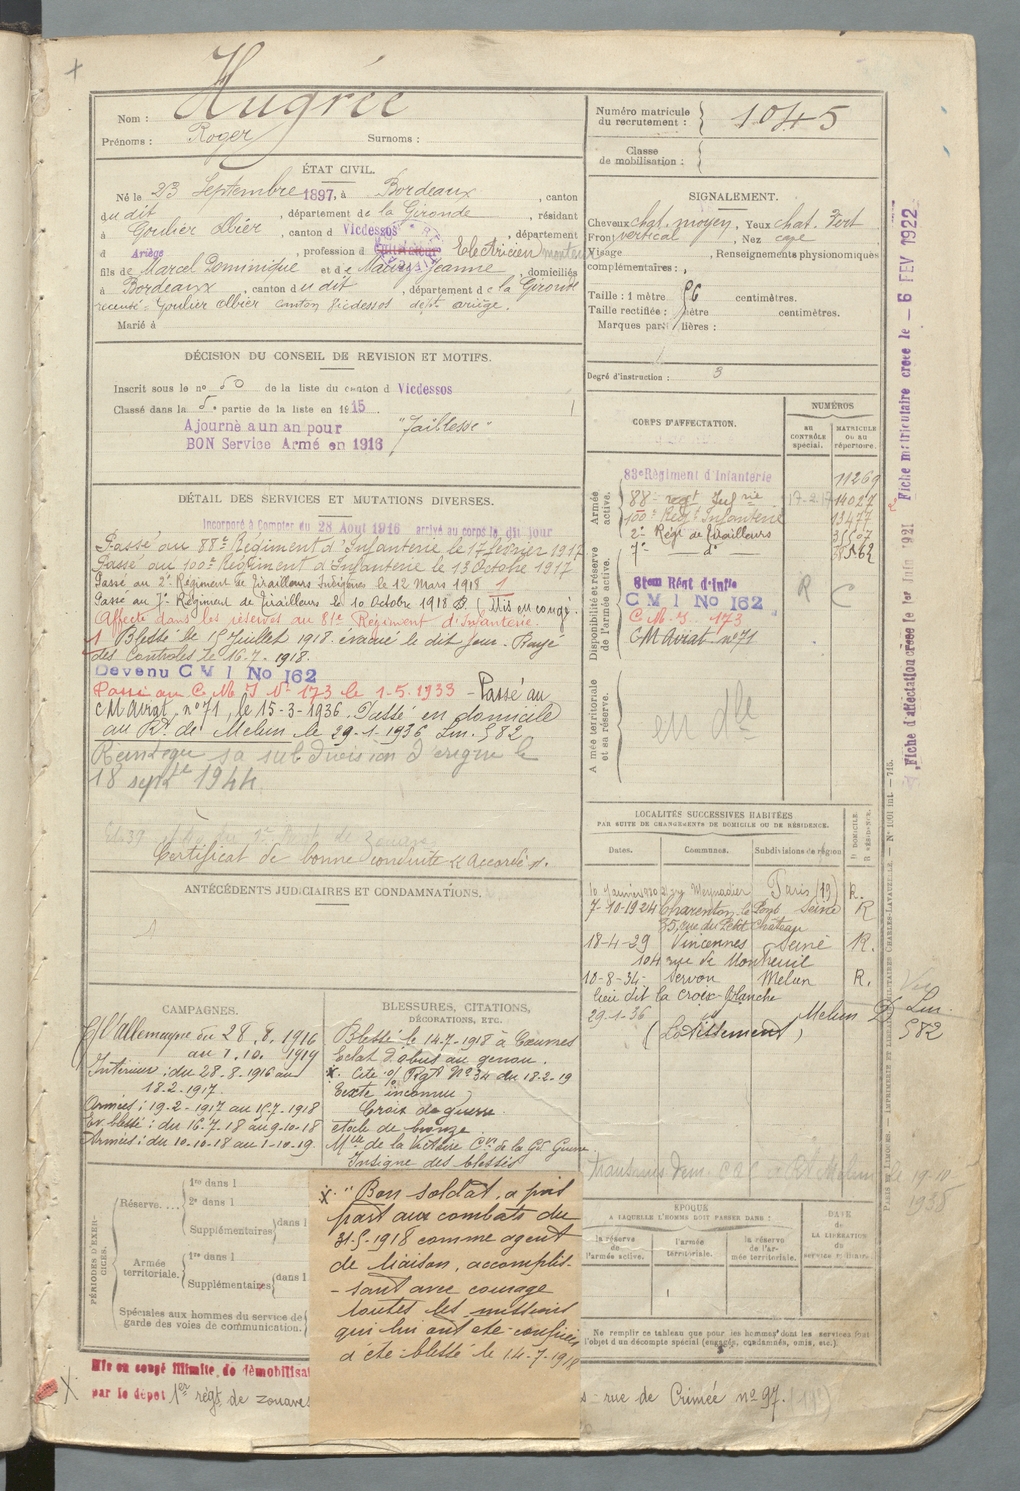 Nom : Hugrée
Prénoms : Roger Surnoms :
Numéro matricule du recrutement : 1045
Classe de mobilisation :
ÉTAT CIVIL.
Né le 23 Septembre 1897, à Bordeaux, canton
du dit, département de la Gironde, résidant
à Goulier Olbier, canton d Vicdessos, département
d Ariège, profession d Electricien monteur
fils de Marcel Dominique et de Jeanne, domiciliés
à Bordeaux, canton du dit, département de la Gironde
Goulier Olbier canton Vicdessos dept ariège.
Marié à
SIGNALEMENT.
Cheveux chat. moyen, Yeux chat. Fort
Front vertical, Nez
Visage , Renseignements physionomiques
complémentaires :
Taille : 1 mètre 56 centimètres.
Taille rectifiée : mètre centimètres.
Marques particulières :
Degré d'instruction : 3
DÉCISION DU CONSEIL DE REVISION ET MOTIFS.
Inscrit sous le n° 50 de la liste du canton d Vicdessos
Classé dans la 5e partie de la liste en 1915
Ajourné a un an pour "Faiblesse"
BON Service Armé en 1916
DÉTAIL DES SERVICES ET MUTATIONS DIVERSES.
Incorporé à Compter du 28 Aout 1916 arrivé au corps le dit jour
Passé au 88e Régiment d'Infanterie le 17 février 1917
Passé au 100e Régiment d'Infanterie le 13 Octobre 1917
Passé au 2e Régiment de Tirailleurs Indigènes le 12 Mars 1918 1
Passé au 7e Régiment de Tirailleurs le 10 Octobre 1918 (Mis en congé.
Affecté dans les réserves au 81e Régiment d'Infanterie.
1 Blessé le 15 Juillet 1918. évacué le dit jour. Rayé
des Contrôles le 16.7.1918.
Devenu C M I No 162
Passé au C.M.I N° 173 le 1-5-1933 - Passé au
CM Aviat. n°71, le 15-3-1936. Passé en domicile
au Rt. de Melun le 29-1-1936 Lm. 582
Réintègre sa subdivision d'origine le
18 septe 1944
Certificat de bonne conduite "Accordé".
CORPS D'AFFECTATION.
NUMÉROS
AU CONTRÔLE spécial.
MATRICULE OU AU répertoire.
Armée active.
83e Régiment d'Infanterie 11269
88e regt Infrie 17-2-17 14027
100e Regt Infanterie 13477
2e Régt de Tirailleurs
7e - d° -
Disponibilité et réserve de l'armée active.
81eme Régt d'Infie
C M I No 162 R C
C.M.I. 173
CM Aviat n°71
Armée territoriale et sa réserve.
en dlle
LOCALITÉS SUCCESSIVES HABITÉES
PAR SUITE DE CHANGEMENTS DE DOMICILE OU DE RÉSIDENCE.
Dates. Communes. Subdivisions de région
D. DOMICILE R. RÉSIDENCE.
10 Janvier 1920 Meynadier Paris (19) R.
7-10-1924 Charenton le Pont Seine R
35, rue du Petit Château
18-4-29 Vincennes Seine R.
104 rue de Montreuil
10-8-34- Servon Melun R.
lieu dit la Croix-Blanche
29.1.36 Melun D Lm. 582
(Lotissement)
ANTÉCÉDENTS JUDICIAIRES ET CONDAMNATIONS.
CAMPAGNES.
C/ l'Allemagne du 28.8.1916
au 1.10.1919
Intérieur : du 28-8-1916 au
18-2-1917.
Armées : 19-2-1917 au 15.7-1918
Ev. blessé : du 16.7.18 au 9-10-18
Armées : du 10.10.18 au 1-10-19.
BLESSURES, CITATIONS,
DÉCORATIONS, ETC.
Blessé le 14-7-1918 à Coeuvres
Eclat d'obus au genou.
x. Cité o/ Rgt N°34 du 18-2-19
Texte inconnu
Croix de guerre
étoile de bronze
Mlle de la Victoire Cve de la Gde Guerre
Insigne des blessés
x. "Bon soldat, a pris
part aux combats du
31-5-1918 comme agent
de liaison, accomplis-
-sant avec courage
toutes les missions
qui lui ont été confiées
a été blessé le 14-7-1918
PÉRIODES D'EXERCICES.
Réserve.... 1re dans l
2e dans l
Supplémentaires dans l
Armée territoriale. 1re dans l
Supplémentaires dans l
Spéciales aux hommes du service de garde des voies de communication.
ÉPOQUE
A LAQUELLE L'HOMME DOIT PASSER DANS :
la réserve de l'armée active.
l'armée territoriale.
la réserve de l'armée territoriale.
DATE de LA LIBÉRATION du service militaire.
Ne remplir ce tableau que pour les hommes dont les services font
l'objet d'un décompte spécial (engagés, condamnés, omis, etc.)
Mis en congé illimité de démobilisat
par le dépôt 1er régt de zouaves
rue de Crimée n°97. (19e)
Fiche matriculaire créée le - 6 FEV 1922
Fiche d'affectation créée le 1er Juin 1921